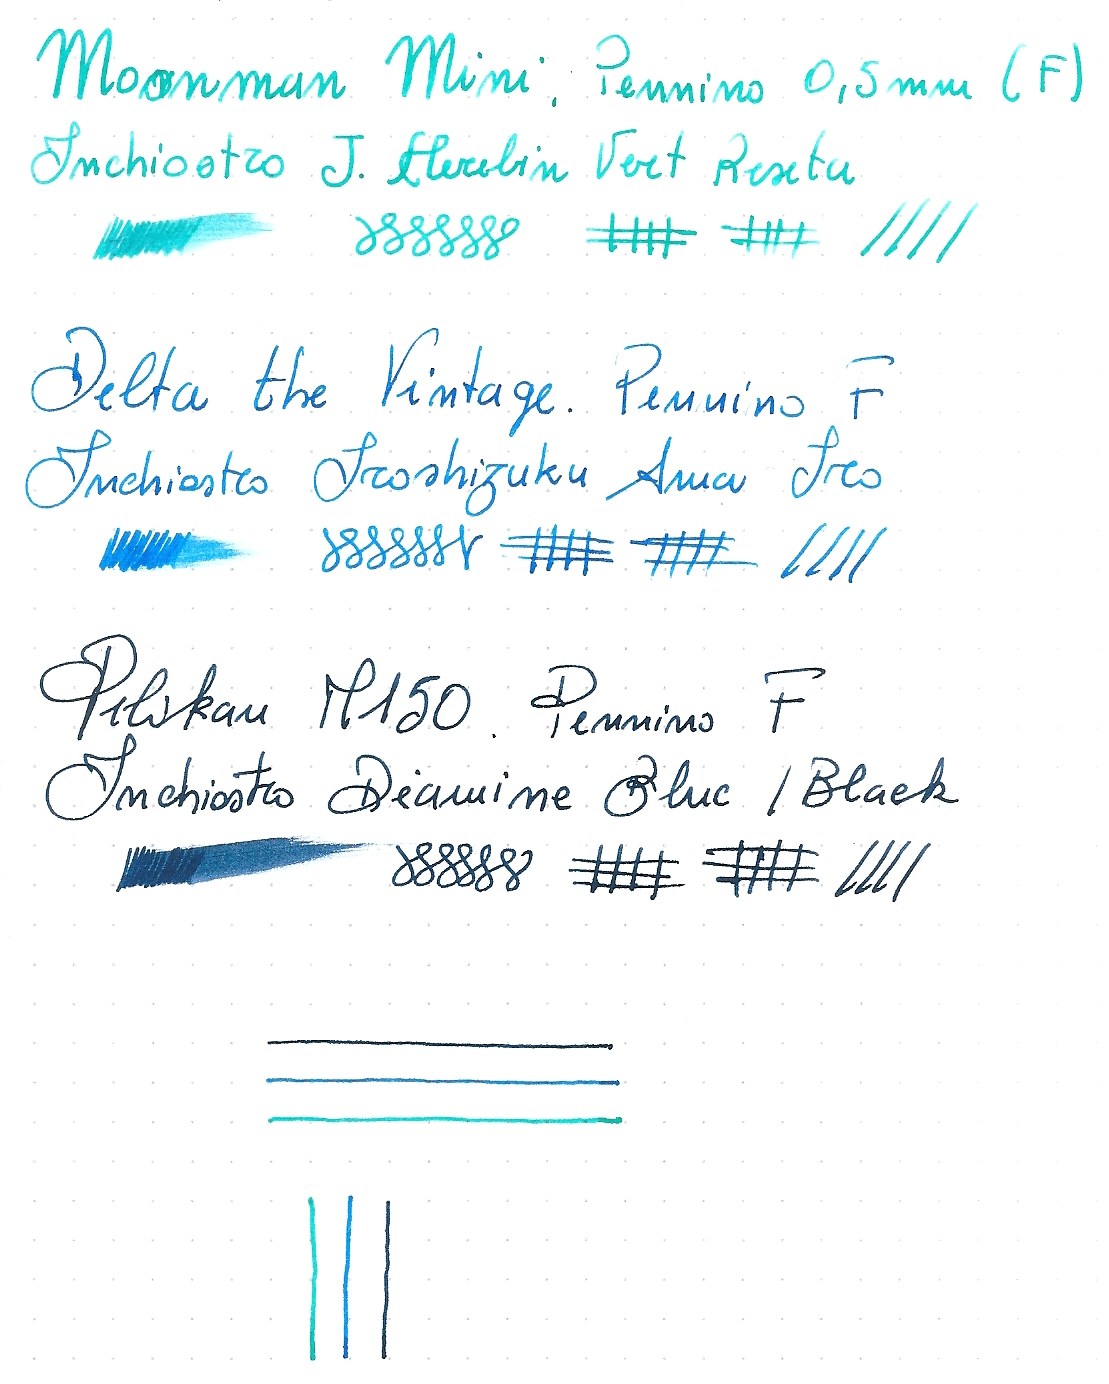 Moonman Mini, Pennino 0,5mm (F)
Inchiostro J. Herbin Vert Reseta
Delta the Vintage. Pennino F
Inchiostro Iroshizuku Ama Iro
Pelikan M150. Pennino F
Inchiostro Diamine Blue / Black